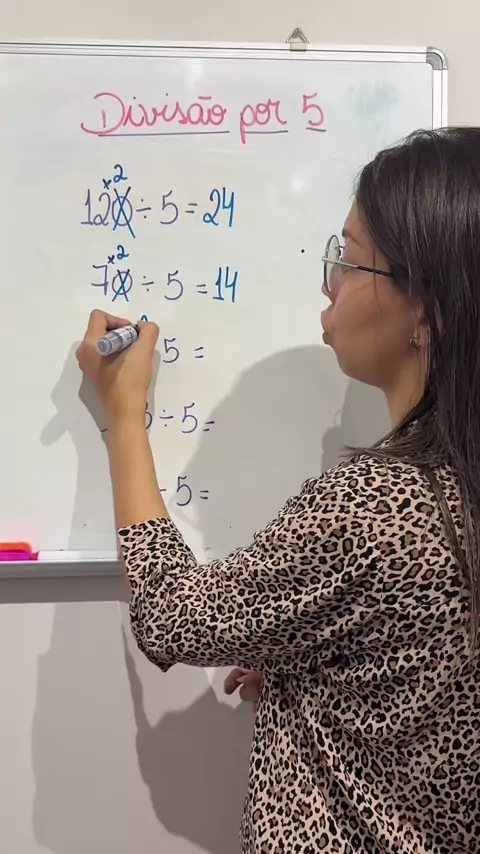 Divisão por 5
x2
120 ÷ 5 = 24
x2
70 ÷ 5 = 14
5 =
÷ 5 =
5 =